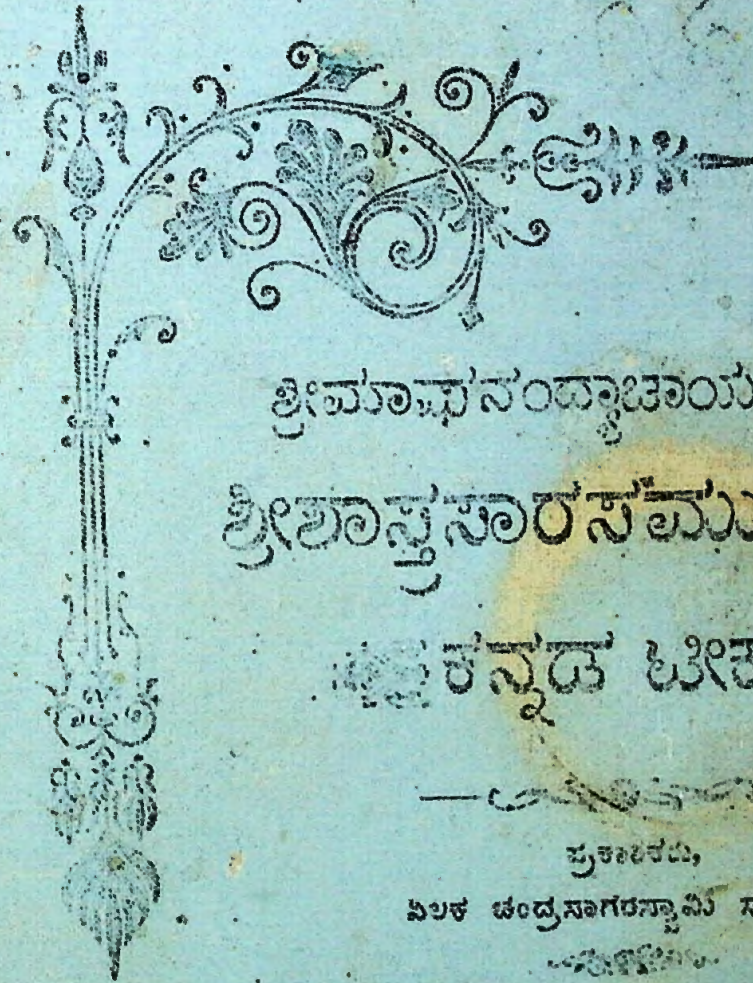 ಶ್ರೀಮಾಘನಂದ್ಯಾಚಾಯ
ಶ್ರೀಶಾಸ್ತ್ರಸಾರಸಮು
ಕನ್ನಡ ಟೀಕ
ಪ್ರಕಾಶಕರು,
ಐಲಕ ಚಂದ್ರಸಾಗರಸ್ವಾಮಿ ಸ